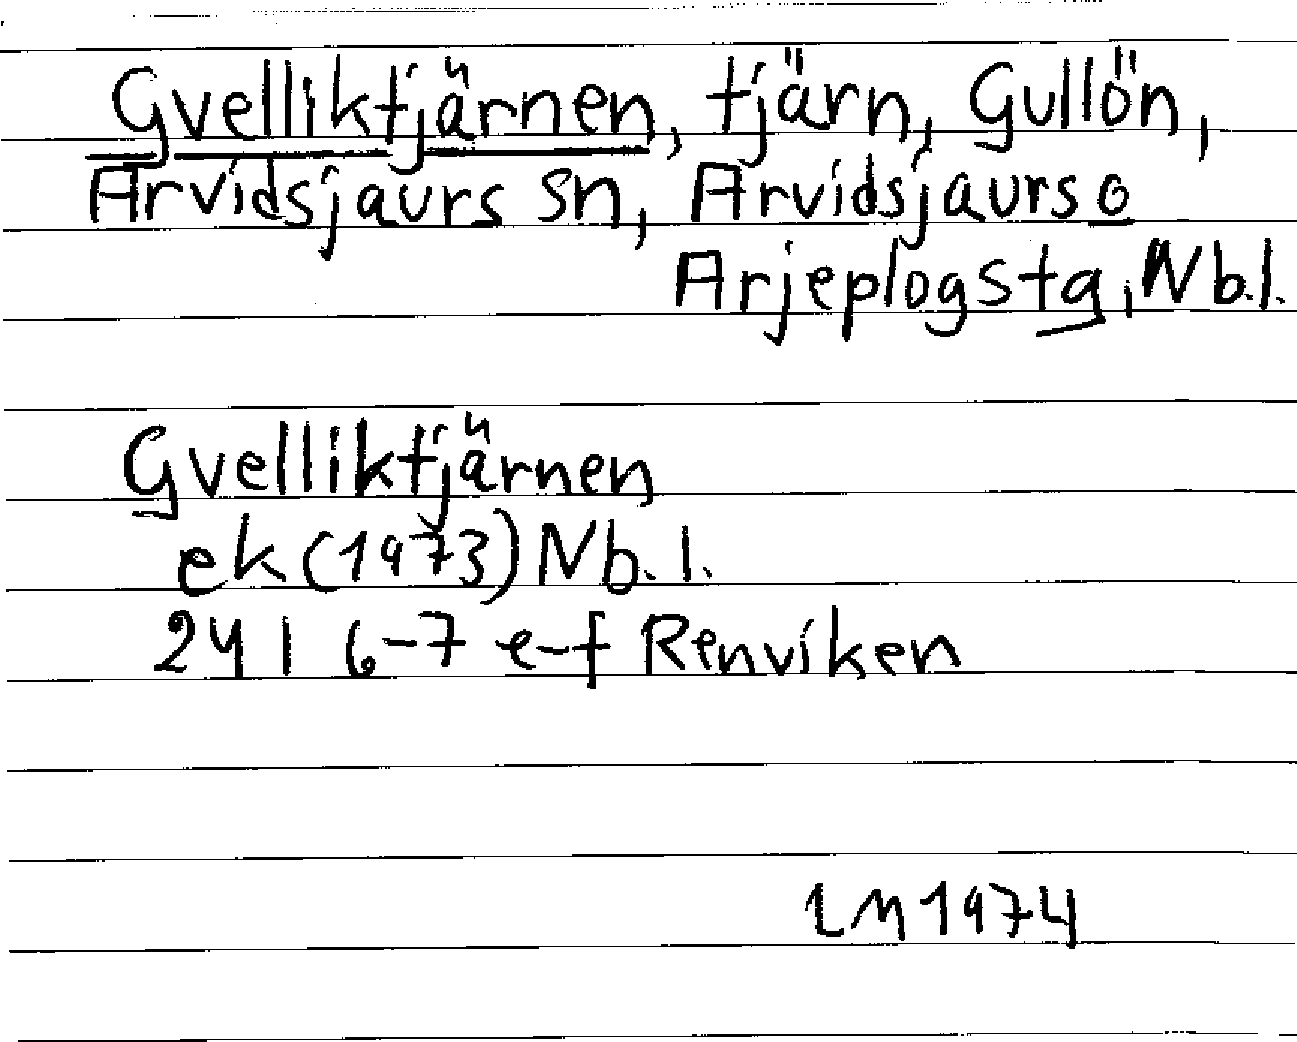 Gvelliktjärnen, tjärn, Gullön,
Arvidsjaurs sn, Arvidsjaurs o
Arjeplogs tg, Nb.l.
Gvelliktjärnen
ek (1973) Nb.l.
24I 6-7 e-f Renviken
LM 1974